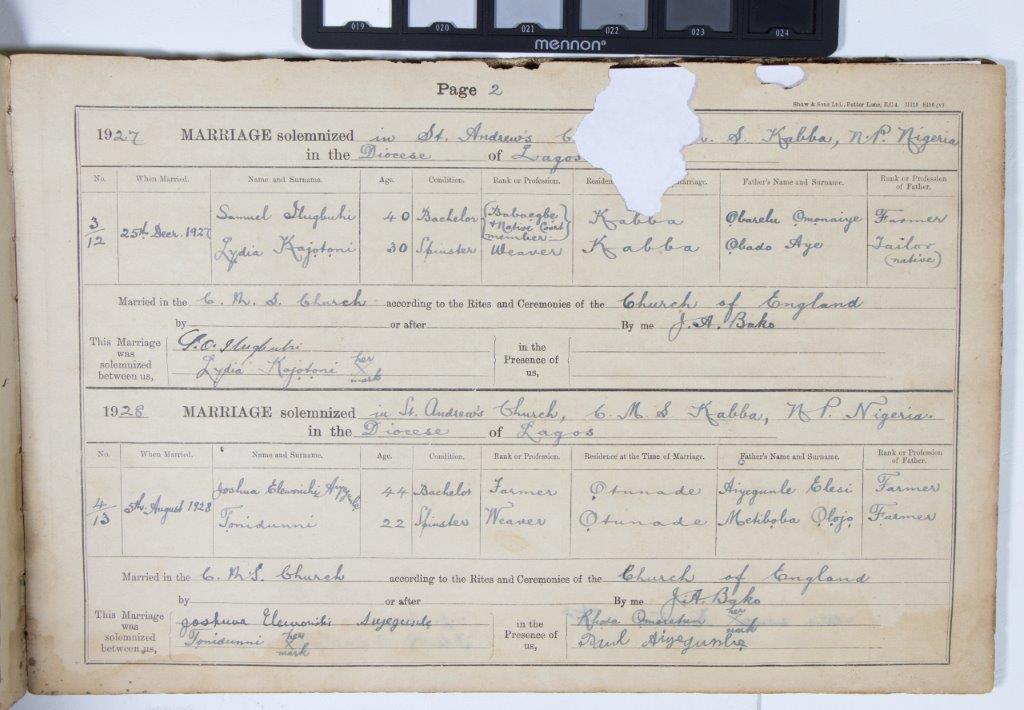 019 020 021 022 023 024
mennon®
Page 2
Shaw & Sons Ltd., Fetter Lane, E.C.4.
1927 MARRIAGE solemnized in St. Andrew's C S. Kabba, N.P. Nigeria
in the Diocese of Lagos
No. When Married. Name and Surname. Age. Condition. Rank or Profession. Residen arriage. Father's Name and Surname. Rank or Profession of Father.
3/12 25th Decr. 1927 Samuel Ilugbuhi 40 Bachelor Babaegbe & Native Court member Kabba Obarelu Omonaiye Farmer
Lydia Kajotoni 30 Spinster Weaver Kabba Obado Aye Tailor (native)
Married in the C. M. S. Church according to the Rites and Ceremonies of the Church of England
by or after By me J. A. Bako
This Marriage was solemnized between us, S. O. Ilugbuhi in the Presence of us,
Lydia Kajotoni her X mark
1928 MARRIAGE solemnized in St. Andrew's Church, C. M. S. Kabba, N.P. Nigeria.
in the Diocese of Lagos
No. When Married. Name and Surname. Age. Condition. Rank or Profession. Residence at the Time of Marriage. Father's Name and Surname. Rank or Profession of Father.
4/13 5th August 1928 Joshua Elewonihi Aiyegunle 44 Bachelor Farmer Otunade Aiyegunle Elesi Farmer
Tonidunni 22 Spinster Weaver Otunade Metiboba Olojo Farmer
Married in the C. M. S. Church according to the Rites and Ceremonies of the Church of England
by or after By me J. A. Bako
This Marriage was solemnized between us, Joshuwa Elewonihi Aiyegunle in the Presence of us, Rhoda her X mark
Tonidunni her X mark Paul Aiyegunle